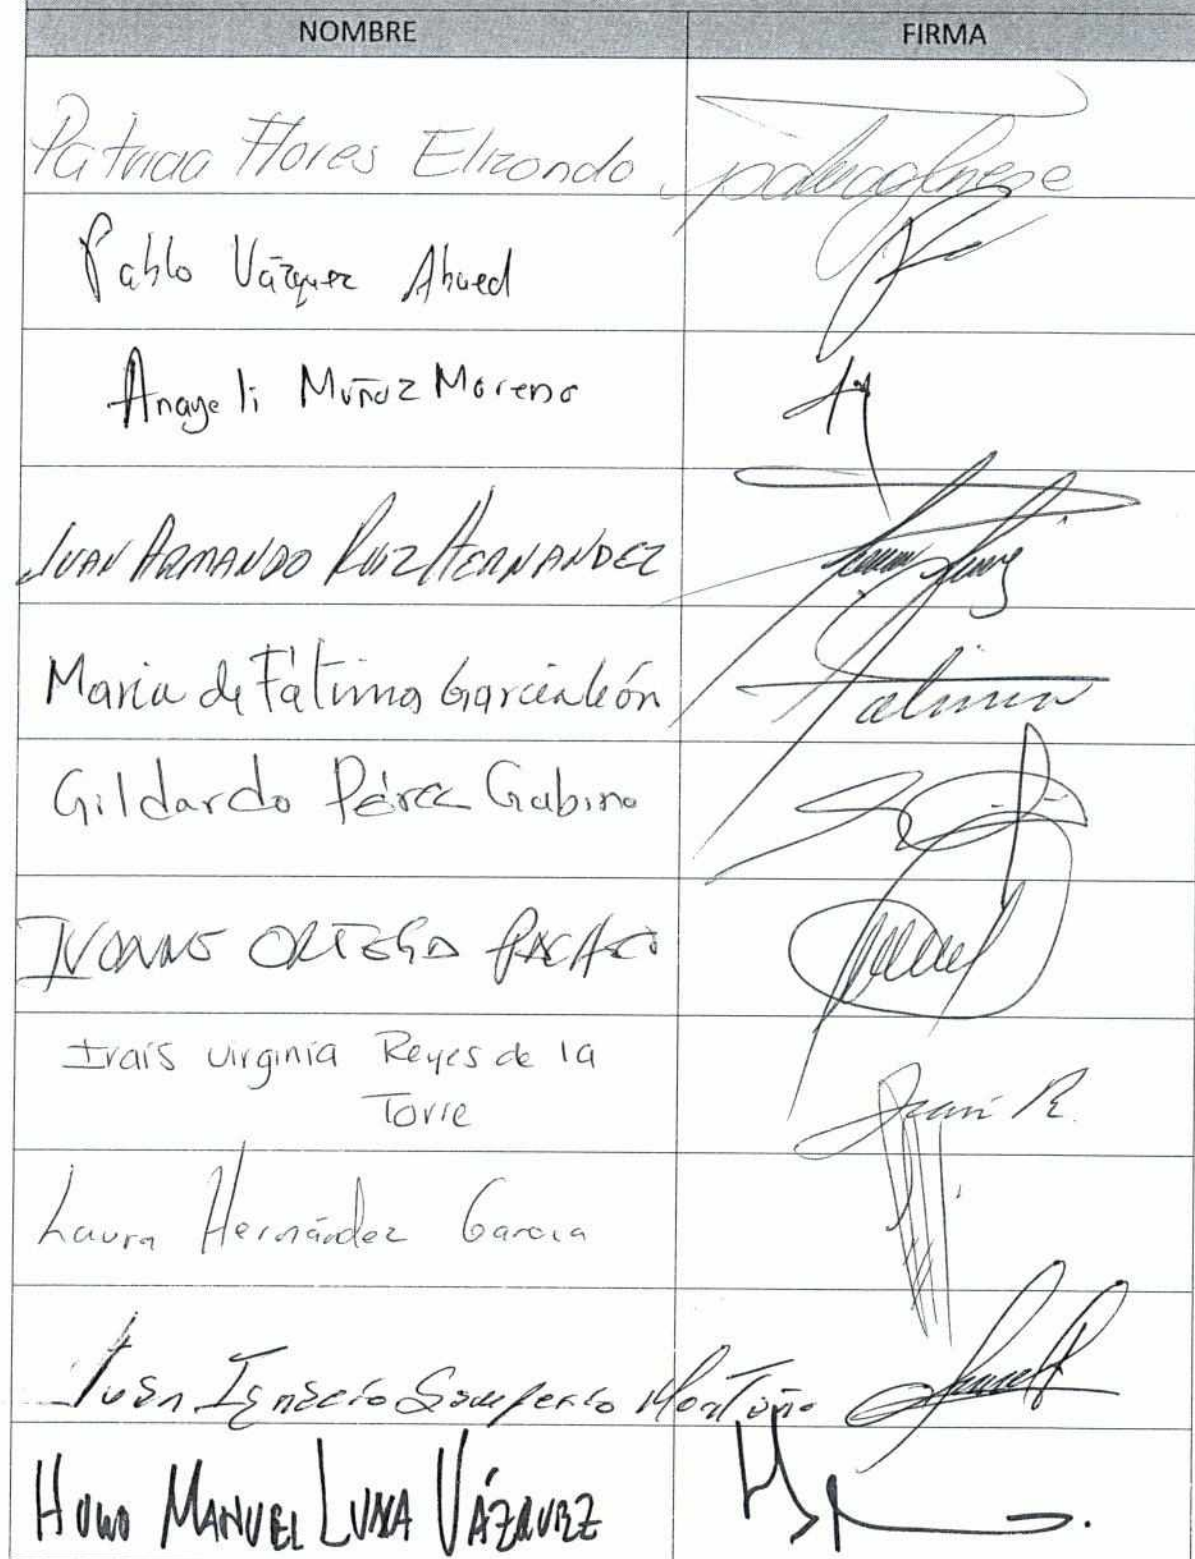 NOMBRE FIRMA
Patricia Flores Elizondo
Pablo Vázquez Ahued
Anayeli Muñoz Moreno
JUAN ARMANDO RUIZ HERNANDEZ
Maria de Fátima Garcíaleón Fatima
Gildardo Pérez Gabino
IVONNE ORTEGA PACHECO
Iraís Virginia Reyes de la
Torre Irais R.
Laura Hernández Garcia
Juan Ignacio Samperio Montaño
HUGO MANUEL LUNA VÁZQUEZ